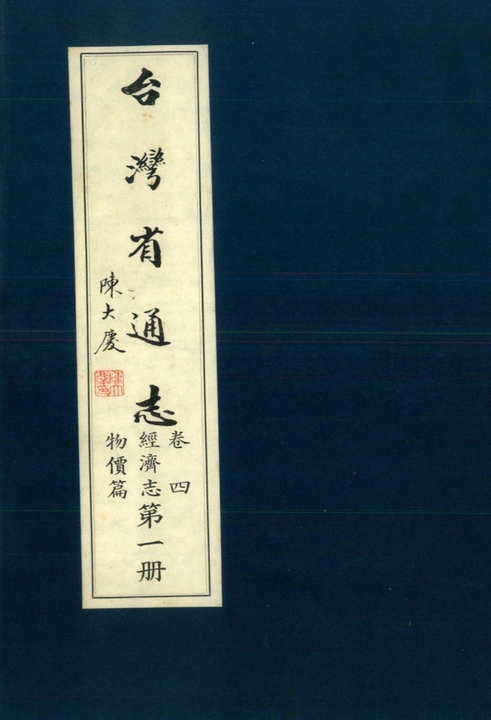 台灣省通志
陳大慶
卷四
經濟志第一册
物價篇